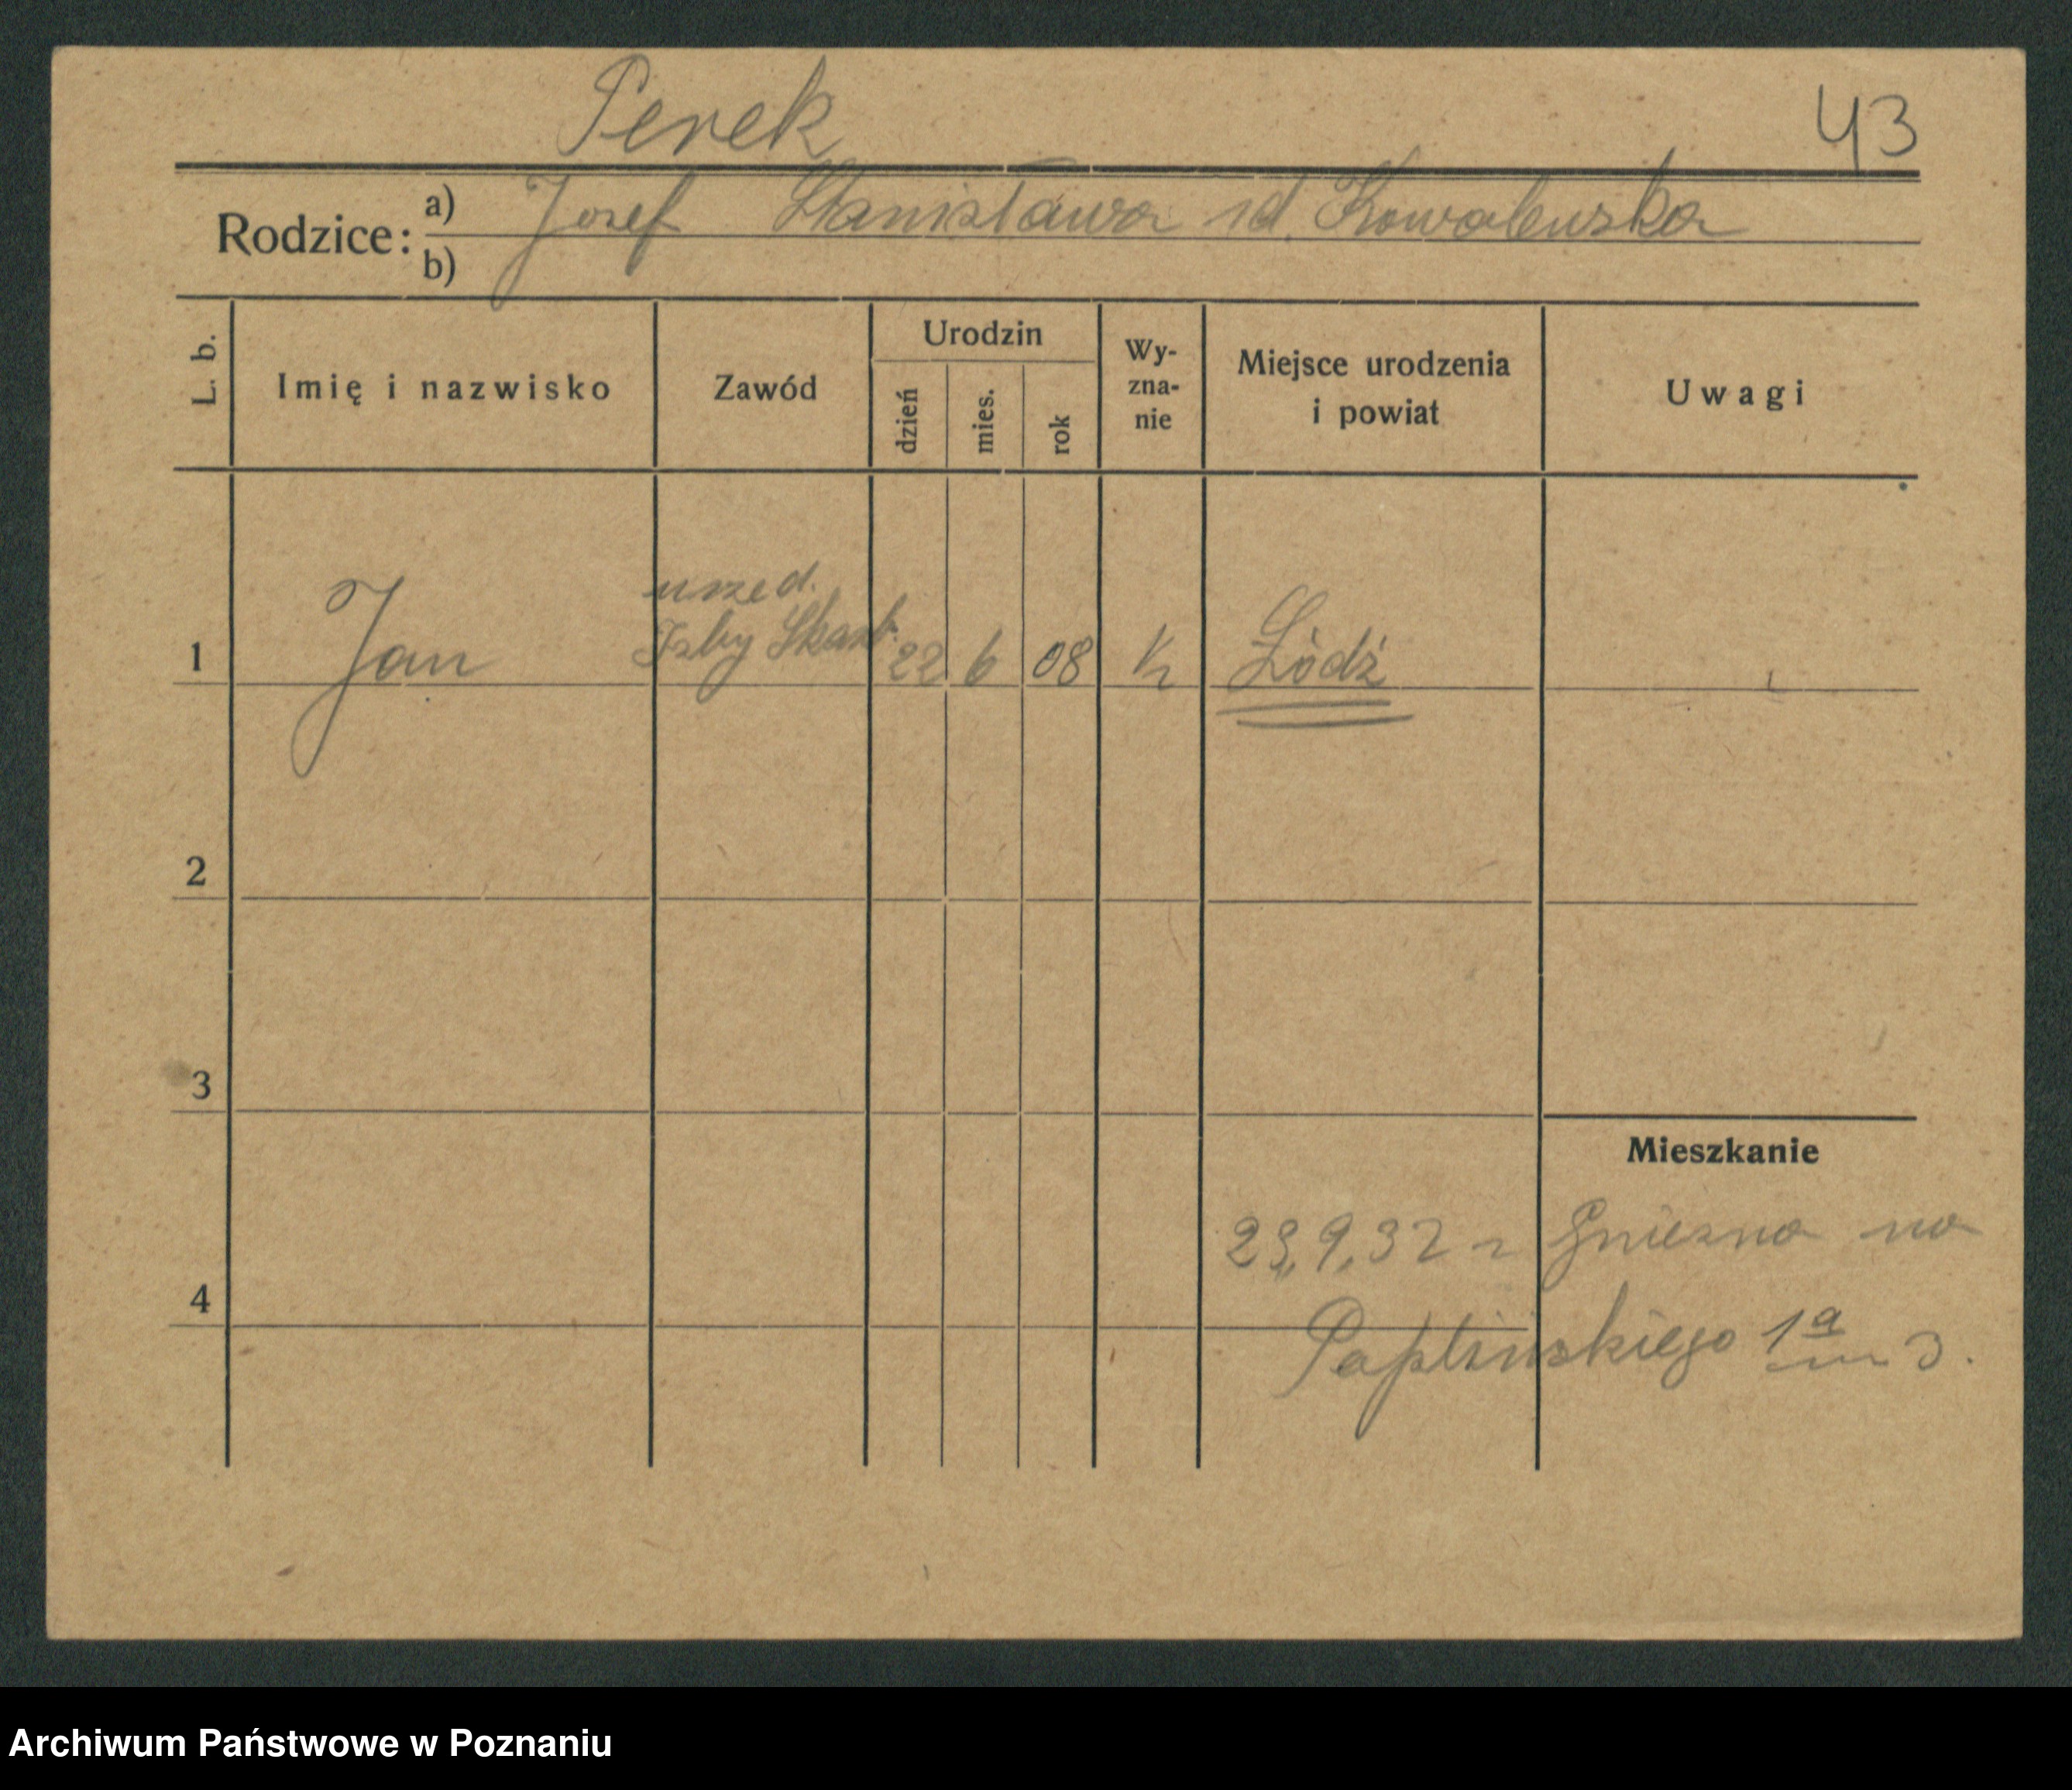 Perek
43
Rodzice: a) Josef Stanisława zd. Kowalewska
b)
L. b.
Imię i nazwisko
Zawód
Urodzin
dzień
mies.
rok
Wy-
zna-
nie
Miejsce urodzenia
i powiat
Uwagi
1 Jan urzed.
Izby Skarb. 22 6 08 K Łódź
2
3
Mieszkanie
9,32 z Gniezna na
4
Paplińskiego 1a m 3.
Archiwum Państwowe w Poznaniu